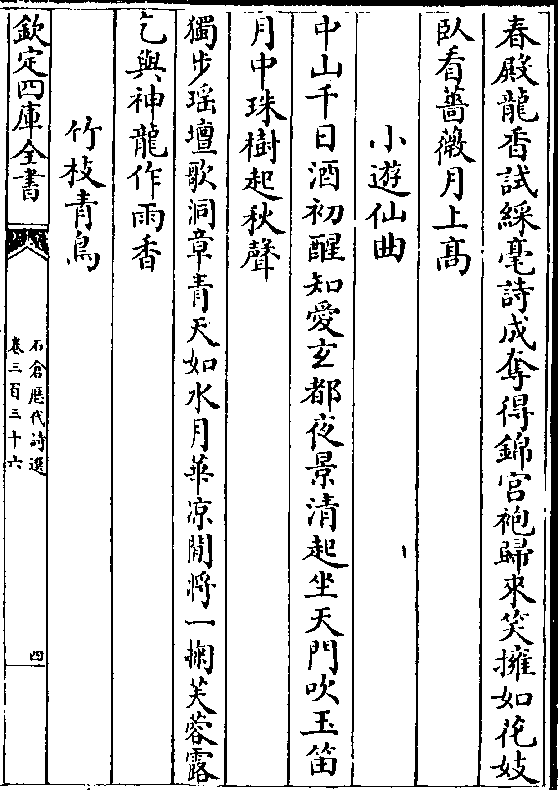 春殿龍香試綵毫詩成奪得錦宮袍歸來笑擁如花妓
臥看薔薇月上髙
小遊仙曲
中山千日酒初醒知愛玄都夜景清起坐天門吹玉笛
月中珠樹起秋聲
獨步瑶壇歌洞章青天如水月華凉閒將一掬芙蓉露
乞與神龍作雨香
竹枝青鳥
欽定四庫全書
石倉歴代詩選
卷三百三十六
四